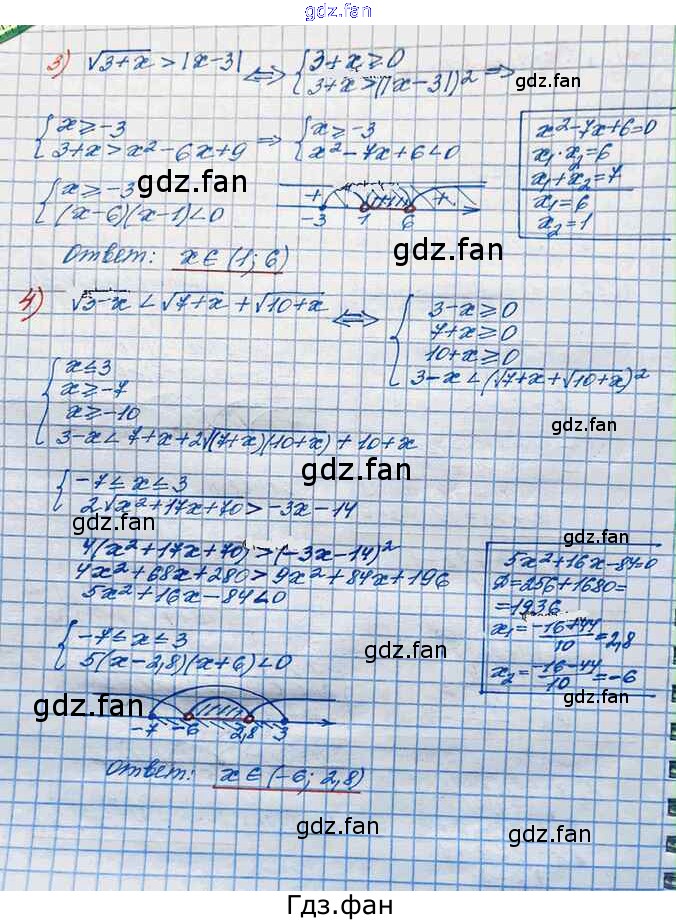 gdz.fan
3) √3+x > |x-3| ⟺ { 3+x ≥ 0
3+x > (|x-3|)² ⟹
gdz.fan
{ x ≥ -3
3+x > x²-6x+9 ⟹ { x ≥ -3
x²-7x+6 < 0
x²-7x+6=0
x₁·x₂=6
x₁+x₂=7
x₁=6
x₂=1
gdz.fan
gdz.fan
{ x ≥ -3
(x-6)(x-1) < 0
+ +
-3 1 6
gdz.fan
Ответ: x ∈ (1; 6)
4) √3-x < √7+x + √10+x ⟺ { 3-x ≥ 0
7+x ≥ 0
10+x ≥ 0
3-x < (√7+x+√10+x)²
gdz.fan
{ x ≤ 3
x ≥ -7
x ≥ -10
3-x < 7+x+2√(7+x)(10+x) + 10+x
gdz.fan
gdz.fan
{ -7 ≤ x ≤ 3
2√x²+17x+70 > -3x-14
gdz.fan
4(x²+17x+70) > (-3x-14)²
4x²+68x+280 > 9x²+84x+196
5x²+16x-84 < 0
5x²+16x-84=0
D=256+1680=
=1936
x₁=(-16+44)/10=2,8
x₂=(-16-44)/10=-6
gdz.fan
gdz.fan
{ -7 ≤ x ≤ 3
5(x-2,8)(x+6) < 0
gdz.fan
gdz.fan
-7 -6 2,8 3
Ответ: x ∈ (-6; 2,8)
gdz.fan
gdz.fan
Гдз.фан